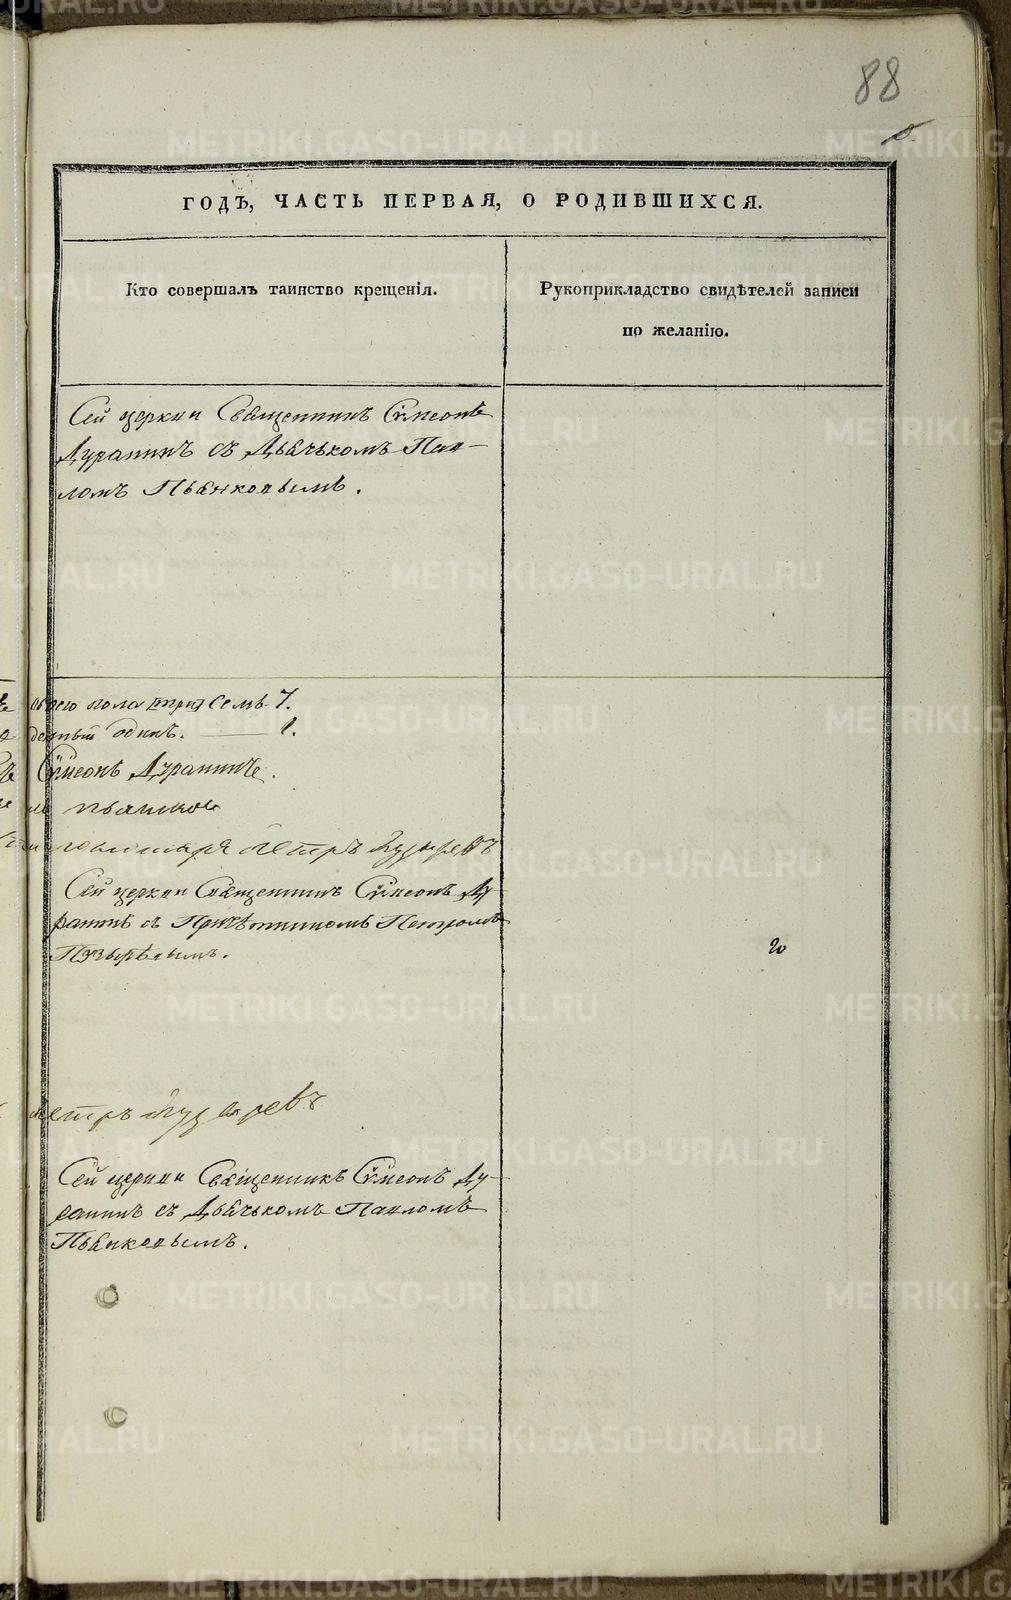 88
ГОДЪ, ЧАСТЬ ПЕРВАЯ, О РОДИВШИХСЯ.
Кто совершалъ таинство крещенія.
Рукоприкладство свидѣтелей записи
по желанію.
Сей церкви Священникъ Сѵмеонъ
Дурапинъ съ Дьячькомъ Пав-
ломъ Пьянковымъ.
обоего пола семь 7.
одинъ. 1.
Сѵмеонъ Дурапинъ.
Пьянков
Петръ Пузыревъ
Сей церкви Священникъ Сѵмеонъ Ду-
рапинъ съ Причетникомъ Петромъ
Пузыревымъ.
Петръ Пузыревъ
Сей церкви Священникъ Сѵмеонъ Ду-
рапинъ съ Дьячькомъ Павломъ
Пьянковымъ.
METRIKI.GASO-URAL.RU